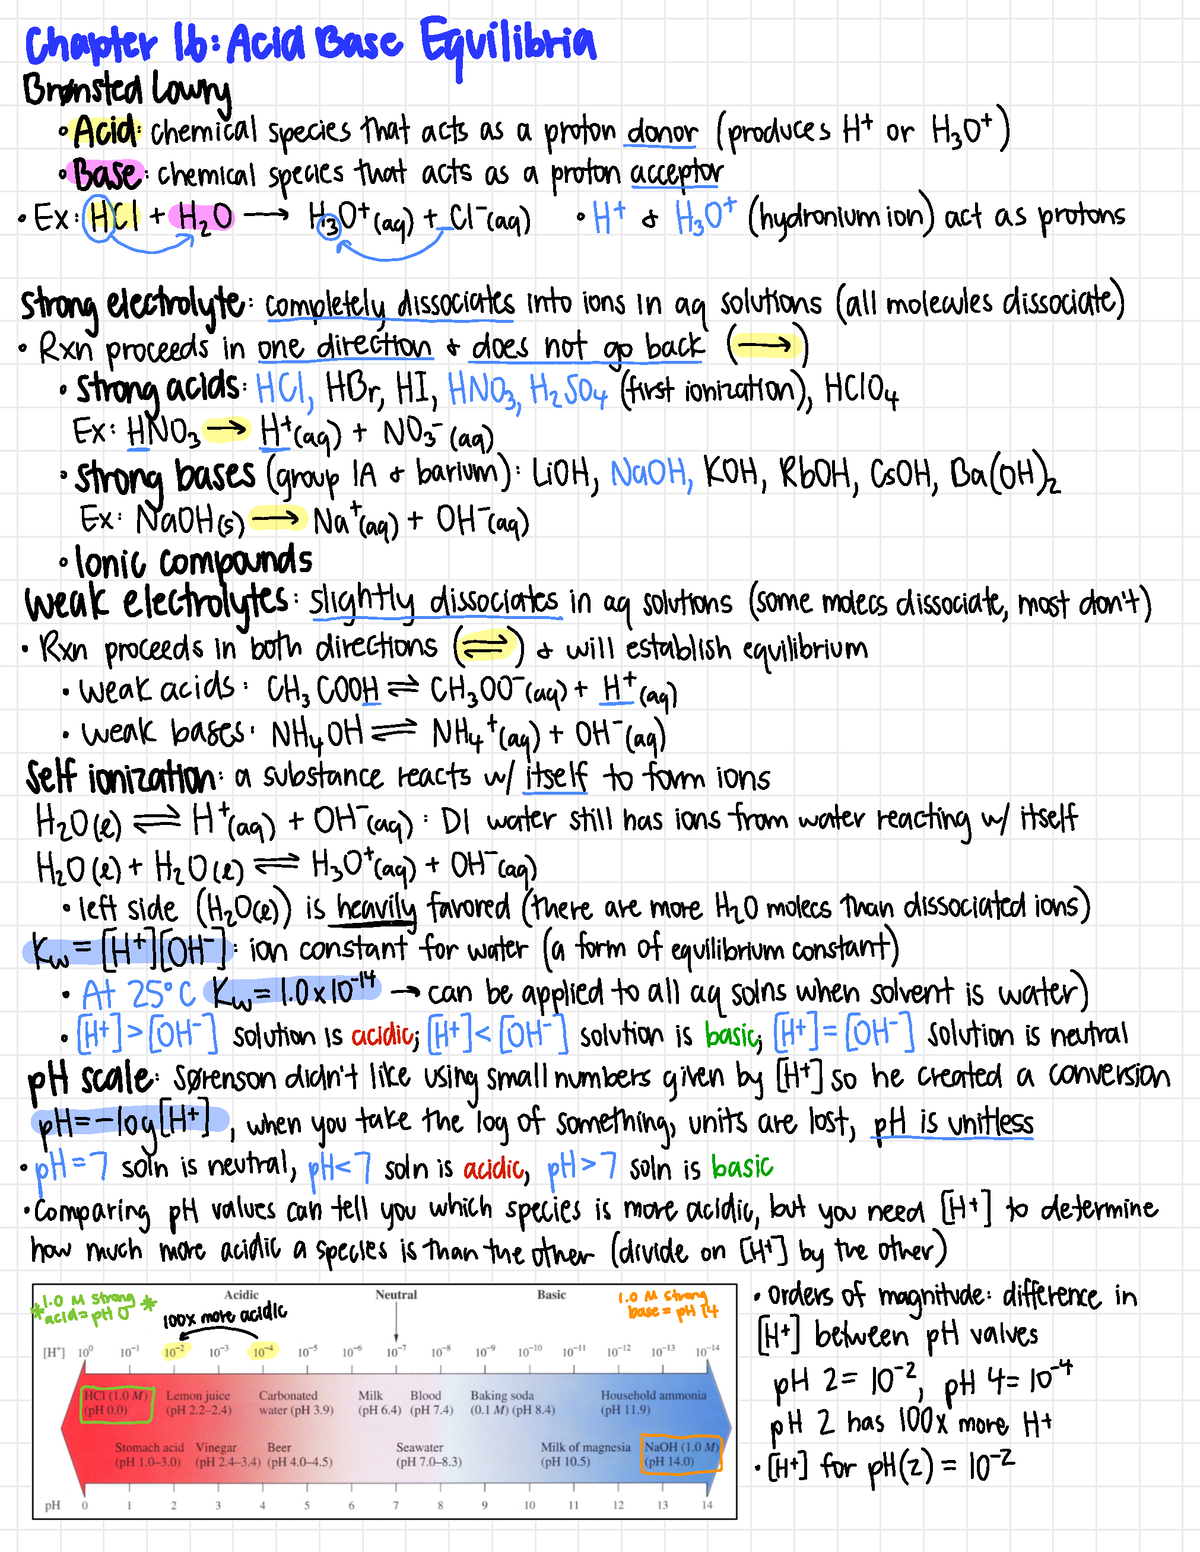 Chapter 16: Acid Base Equilibria
Brønsted Lowry
• Acid: chemical species that acts as a proton donor (produces H⁺ or H₃O⁺)
• Base: chemical species that acts as a proton acceptor
• Ex: HCl + H₂O → H₃O⁺(aq) + Cl⁻(aq) • H⁺ & H₃O⁺ (hydronium ion) act as protons
Strong electrolyte: completely dissociates into ions in aq solutions (all molecules dissociate)
• Rxn proceeds in one direction & does not go back (→)
• Strong acids: HCl, HBr, HI, HNO₃, H₂SO₄ (first ionization), HClO₄
Ex: HNO₃ → H⁺(aq) + NO₃⁻(aq)
• Strong bases (group 1A & barium): LiOH, NaOH, KOH, RbOH, CsOH, Ba(OH)₂
Ex: NaOH(s) → Na⁺(aq) + OH⁻(aq)
• Ionic compounds
Weak electrolytes: slightly dissociates in aq solutions (some molecs dissociate, most don't)
• Rxn proceeds in both directions (⇌) & will establish equilibrium
• weak acids: CH₃COOH ⇌ CH₃OO⁻(aq) + H⁺(aq)
• weak bases: NH₄OH ⇌ NH₄⁺(aq) + OH⁻(aq)
Self ionization: a substance reacts w/ itself to form ions
H₂O(l) ⇌ H⁺(aq) + OH⁻(aq): DI water still has ions from water reacting w/ itself
H₂O(l) + H₂O(l) ⇌ H₃O⁺(aq) + OH⁻(aq)
• left side (H₂O(l)) is heavily favored (there are more H₂O molecs than dissociated ions)
Kw = [H⁺][OH⁻]: ion constant for water (a form of equilibrium constant)
• At 25°C Kw = 1.0x10⁻¹⁴ → can be applied to all aq solns when solvent is water)
• [H⁺] > [OH⁻] solution is acidic; [H⁺] < [OH⁻] solution is basic; [H⁺] = [OH⁻] solution is neutral
pH scale: Sørenson didn't like using small numbers given by [H⁺] so he created a conversion
pH = -log[H⁺], when you take the log of something, units are lost, pH is unitless
• pH = 7 soln is neutral, pH < 7 soln is acidic, pH > 7 soln is basic
• Comparing pH values can tell you which species is more acidic, but you need [H⁺] to determine
how much more acidic a species is than the other (divide on [H⁺] by the other)
*1.0 M strong acid = pH 0*
Acidic Neutral Basic
1.0 M strong base = pH 14
100x more acidic
[H⁺] 10⁰ 10⁻¹ 10⁻² 10⁻³ 10⁻⁴ 10⁻⁵ 10⁻⁶ 10⁻⁷ 10⁻⁸ 10⁻⁹ 10⁻¹⁰ 10⁻¹¹ 10⁻¹² 10⁻¹³ 10⁻¹⁴
HCl (1.0 M) Lemon juice Carbonated Milk Blood Baking soda Household ammonia
(pH 0.0) (pH 2.2–2.4) water (pH 3.9) (pH 6.4) (pH 7.4) (0.1 M) (pH 8.4) (pH 11.9)
Stomach acid Vinegar Beer Seawater Milk of magnesia NaOH (1.0 M)
(pH 1.0–3.0) (pH 2.4–3.4) (pH 4.0–4.5) (pH 7.0–8.3) (pH 10.5) (pH 14.0)
pH 0 1 2 3 4 5 6 7 8 9 10 11 12 13 14
• orders of magnitude: difference in
[H⁺] between pH values
pH 2 = 10⁻², pH 4 = 10⁻⁴
pH 2 has 100x more H+
• [H⁺] for pH(2) = 10⁻²